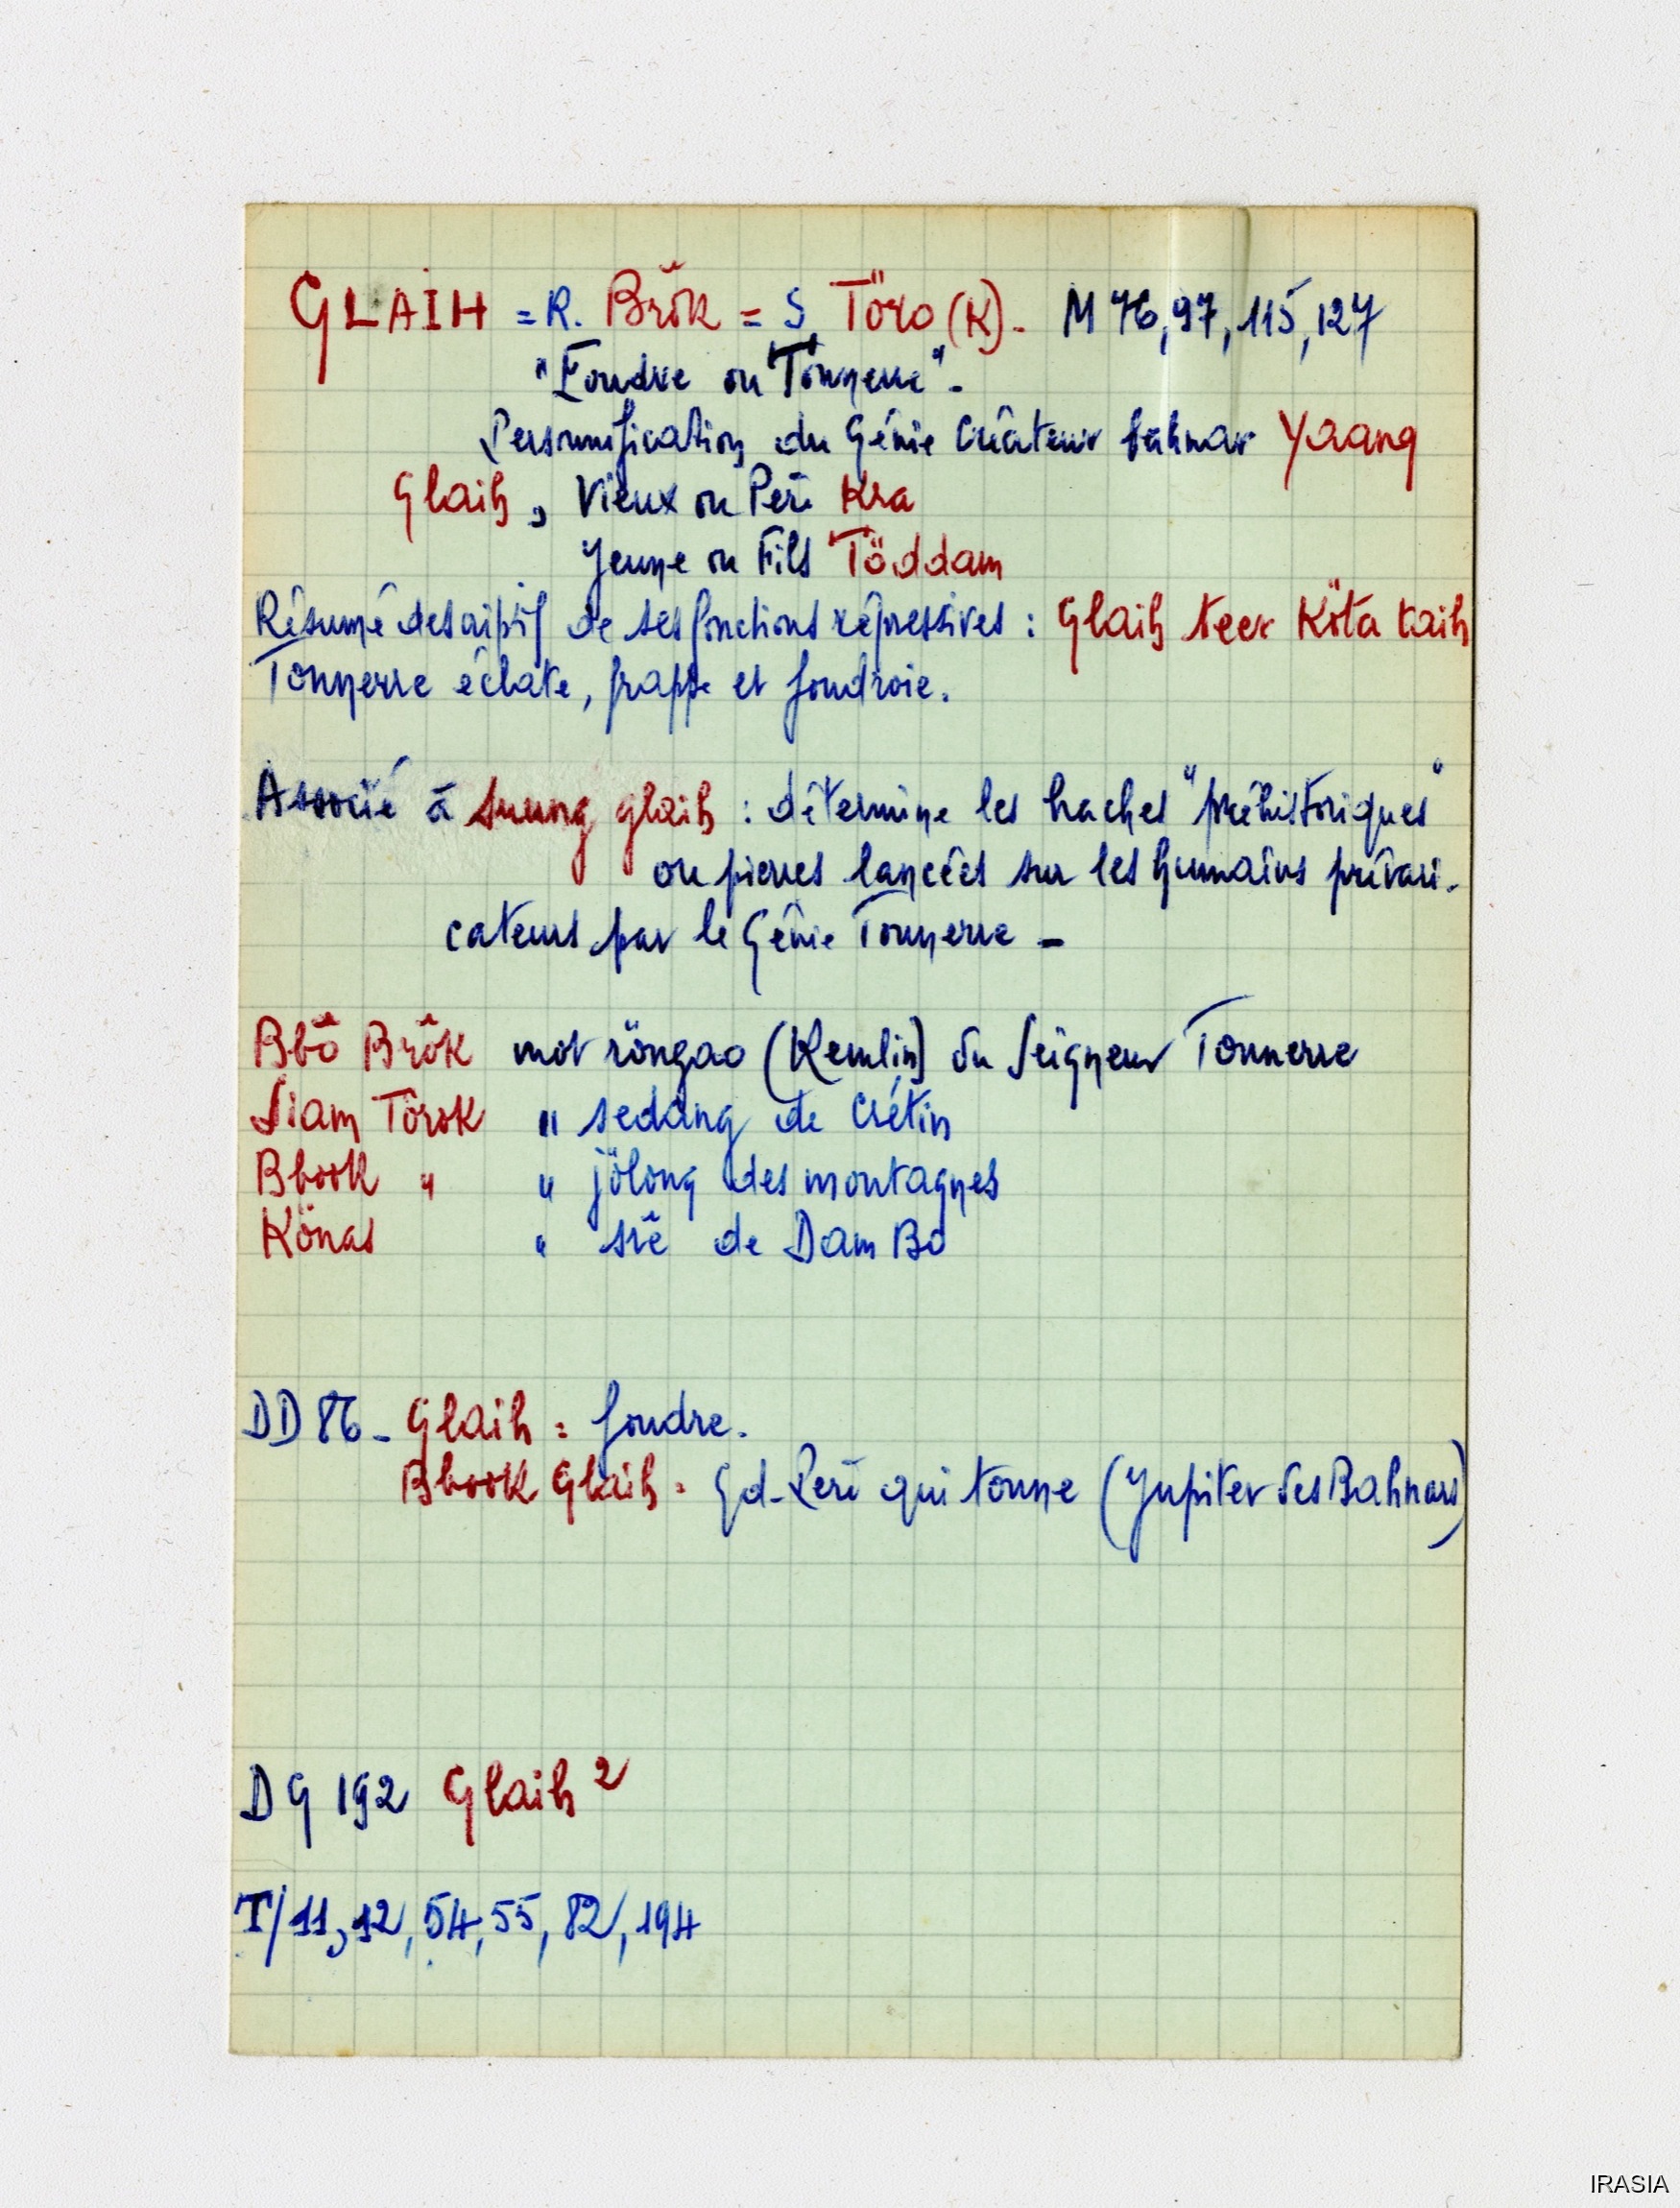 GLAIH = R. Brŏk = S. Töro (K). M 76, 97, 115, 127
"Foudre ou Tonnerre".
Personnification du Génie Créateur bahnar Yaang
Glaih, Vieux ou Père Kra
Jeune ou Fils Töddam
Résumé descriptif de ses fonctions répressives : Glaih teer Köta taih
Tonnerre éclate, frappe et foudroie.
Associé à suung glaih : détermine les haches "préhistoriques"
ou pierres lancées sur les humains prévari-
cateurs par le Génie Tonnerre -
Bbô Brôk mot röngao (Kemlin) du Seigneur Tonnerre
Siam Törok " sedang de Crétin
Bbook " " jölong des montagnes
Könas " srê de Dam Bo
DD 86 - Glaih = foudre.
Bbook Glaih = Gd-Père qui tonne (Jupiter des Bahnars)
DG 192 Glaih ²
T/ 11, 12, 54, 55, 82, 194
IRASIA